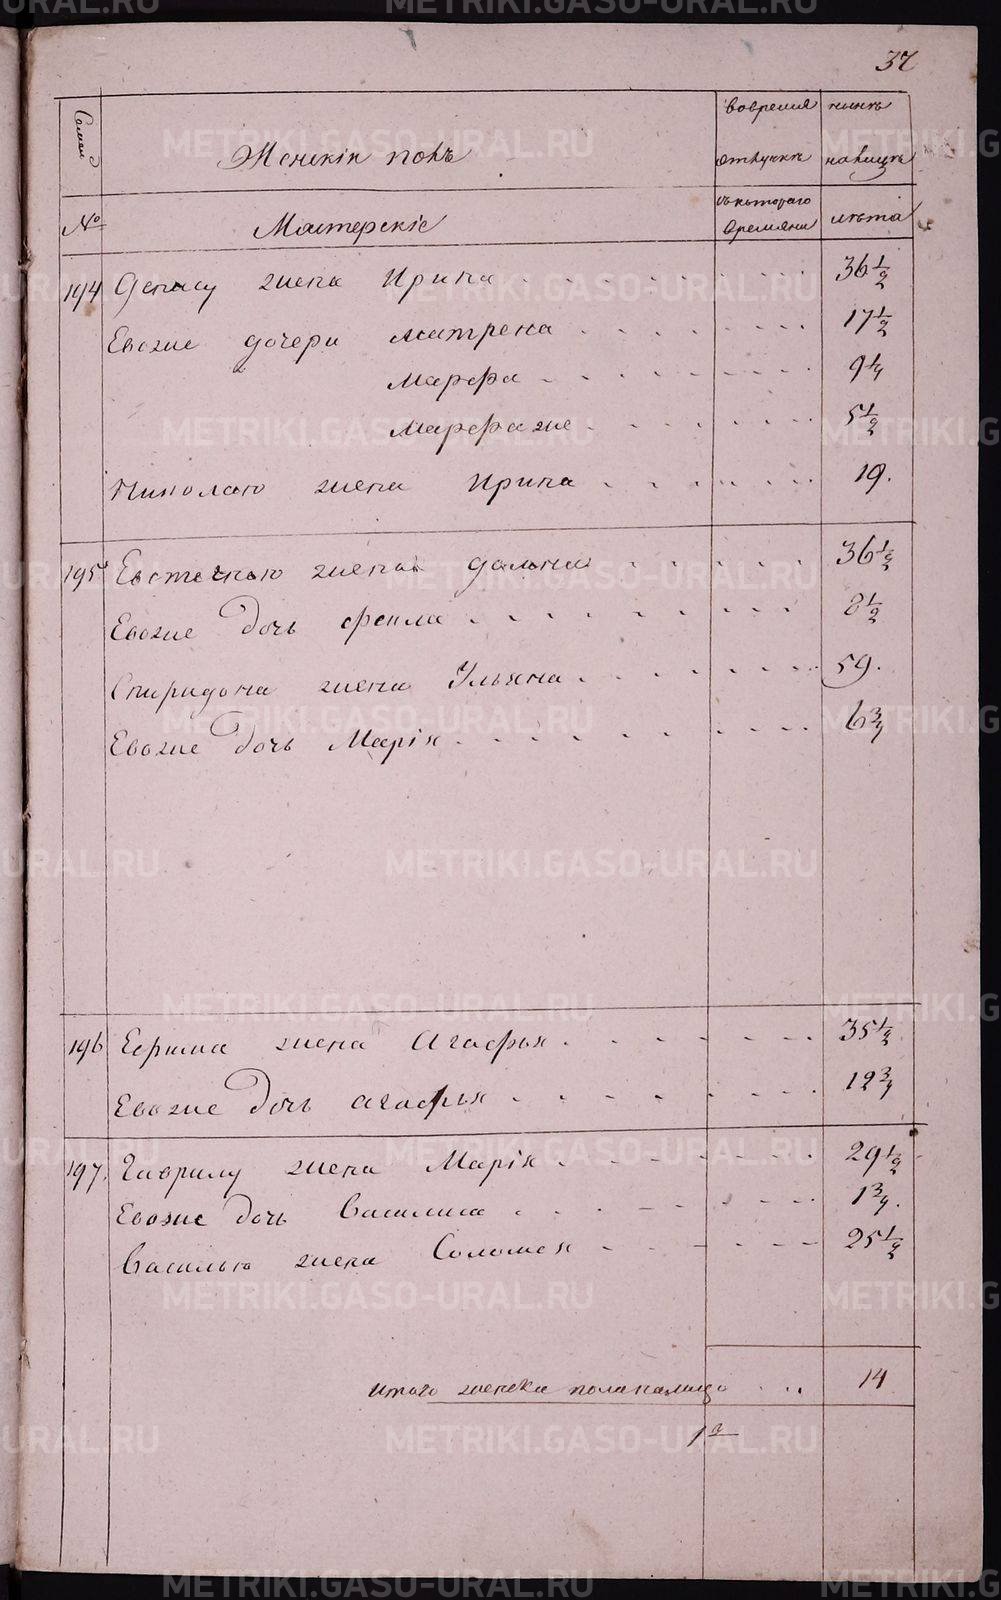 37
Семей
Женскiй полъ
вовремя
отлучкѣ
нынѣ
налицѣ
№
Мастерскiе
съкотораго
времяни
лѣта
194 Денису жена Ирина 36 1/2
Евоже дочери матрена 17 1/2
Марфа 9 1/4
Марфаже 5 1/2
Николаю жена Ирина 19.
195 жена 36 1/2
Евоже Дочь фекла 8 1/2
Спиридона жена Ульяна 59.
Евоже Дочь Марiя 6 3/4
196 Ефима жена Агафья 35 1/2
Евоже Дочь агафья 12 3/4
197. Гаврилу жена Марiя 29 1/2
Евоже Дочь Василиса 1 3/4.
Василью жена Соломея 25 1/2
итого женска поланалицо 14
METRIKI.GASO-URAL.RU